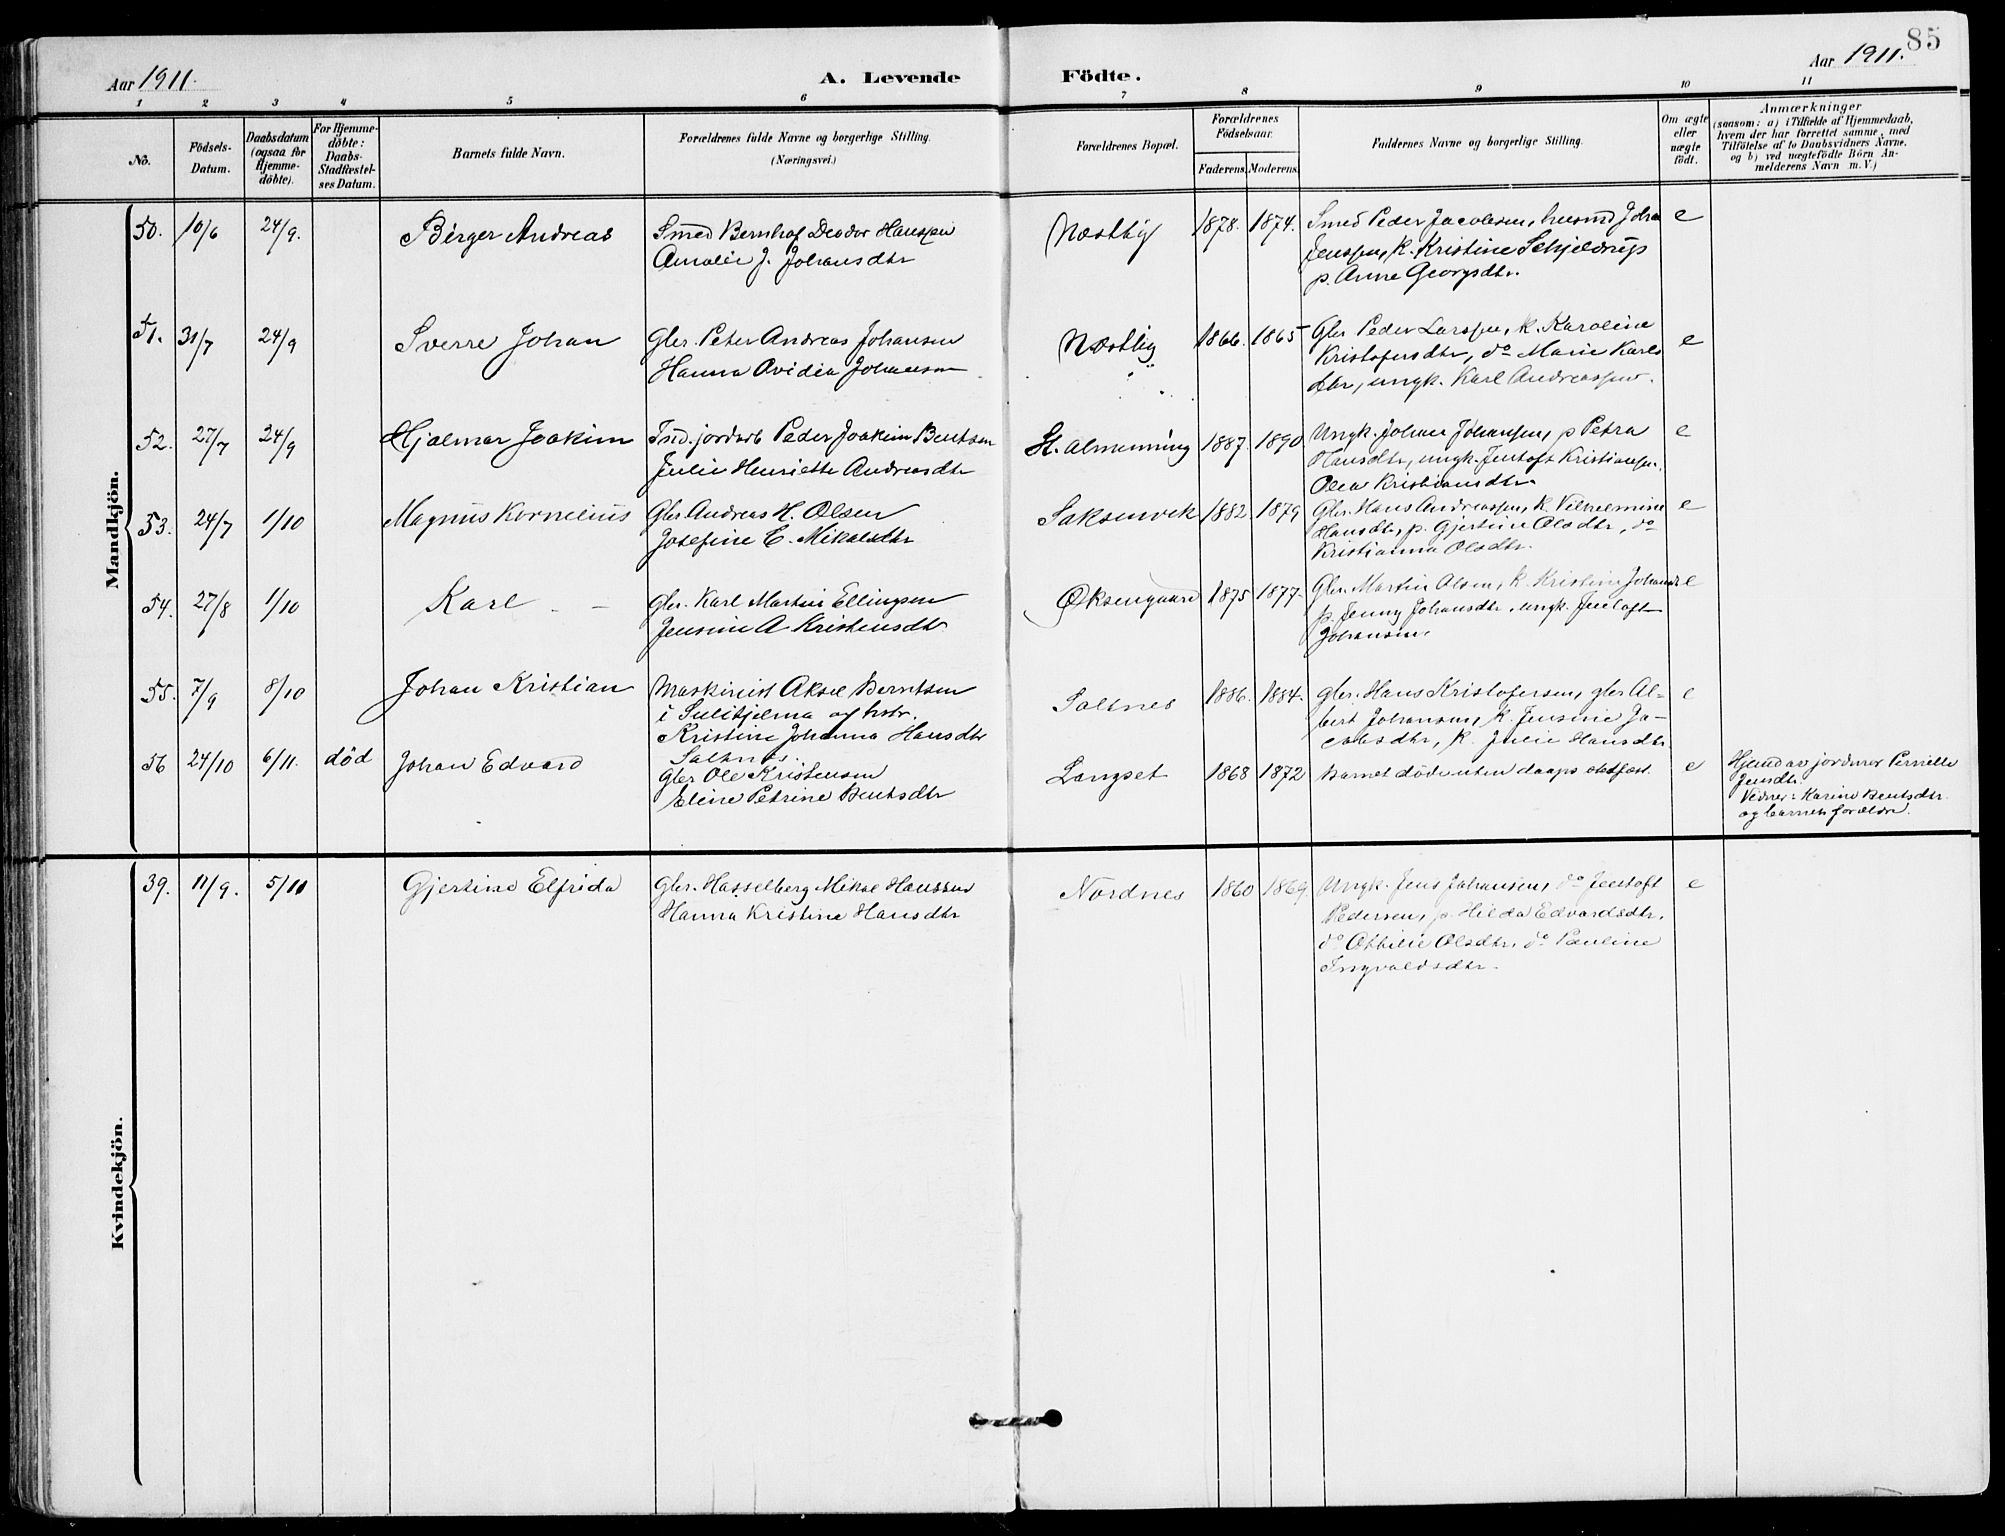 85
Aar 1911.
A. Levende
Födte.
Aar 1911.
1 2 3 4 5 6 7 8 9 10 11
No.
Födsels-
Datum.
Daabsdatum
(ogsaa for
Hjemme-
döbte).
For Hjemme-
döbte:
Daabs-
Stadfæstel-
ses Datum.
Barnets fulde Navn.
Forældrenes fulde Navne og borgerlige Stilling.
(Næringsvei.)
Forældrenes Bopæl.
Forældrenes
Födselsaar.
Faderens. Moderens.
Faddernes Navne og borgerlige Stilling.
Om ægte
eller
uægte
født.
Anmærkninger
(saasom: a) i Tilfælde af Hjemmedaab,
hvem der har forrettet samme, med
Tilföielse af to Daabsvidners Navne,
og b) ved uægtefödte Börn An-
melderens Navn m. V.)
Mandkjön.
50. 10/6 24/9. Birger Andreas Smed Bernhof Deodor Hanssen Næstby 1878. 1874. Smed Peder Jacobsen, husmd Johan e
Amalie J. Johansdtr Jenssen, k. Kristine Schjeldrup
p. Anne Georgsdtr.
51. 31/7 24/9 Sverre Johan Gbr. Peter Andreas Johansen Næstby 1866. 1865 Gbr Peder Larssen, k. Karoline e
Hanna Ovidia Johansen Kristofersdtr, do Marie Karls
dtr, ungk. Karl Andreassen.
52. 27/7 24/9 Hjalmar Joakim Ind. jordarb Peder Joakim Bentsen St. Almenning 1887. 1890 Ungk. Johan Johansen, p Petra e
Julie Henriette Andreasdtr Hansdtr, ungk. Jentoft Kristiansen.
Olea Kristiansdtr.
53. 24/7 1/10 Magnus Kornelius Gbr Andreas H. Olsen Saksenvik 1882. 1879 Gbr. Hans Andreassen, k. Vilhelmine e
Josefine C. Mikalsdtr Hansdtr, p. Gjertine Olsdtr, do
Kristianna Olsdtr.
54. 27/8 1/10 Karl Gbr. Karl Martin Ellingsen Øksengaard 1875 1877. Gbr. Martin Olsen, k. Kristine Johans e
Jensine A Kristensdtr p. Jenny Johansdtr. ungk. Jentoft
Johansen.
55. 7/9 8/10 Johan Kristian Maskinist Aksel Berntsen Saltnes 1886. 1884. gbr. Hans Kristofersen, gbr Al- e
i Sulitjelma og hstr. bert Johansen, k. Jensine Ja-
Kristine Johanna Hansdtr cobsdtr, k. Julie Hansdtr.
Saltnes.
56 24/10 6/11. död Johan Edvard Gbr Ole Kristensen Langset 1868 1872 Barnet døde uten daaps stadfæst. e Hjemd av jordmor Pernille
Eline Petrine Bentsdtr Jensdtr.
Vidner: Karine Bentsdtr.
og barnets forældre.
Kvindekjön.
39. 11/9. 5/11 Gjertine Elfrida Gbr. Hasselberg Mikal Hanssen Nordnes 1860 1869 Ungk. Jens Johansen, do Jentoft e
Hanna Kristine Hansdtr Pedersen, p. Hilda Edvardsdtr.
do Ottilie Olsdtr, do Pauline
Ingvaldsdtr.